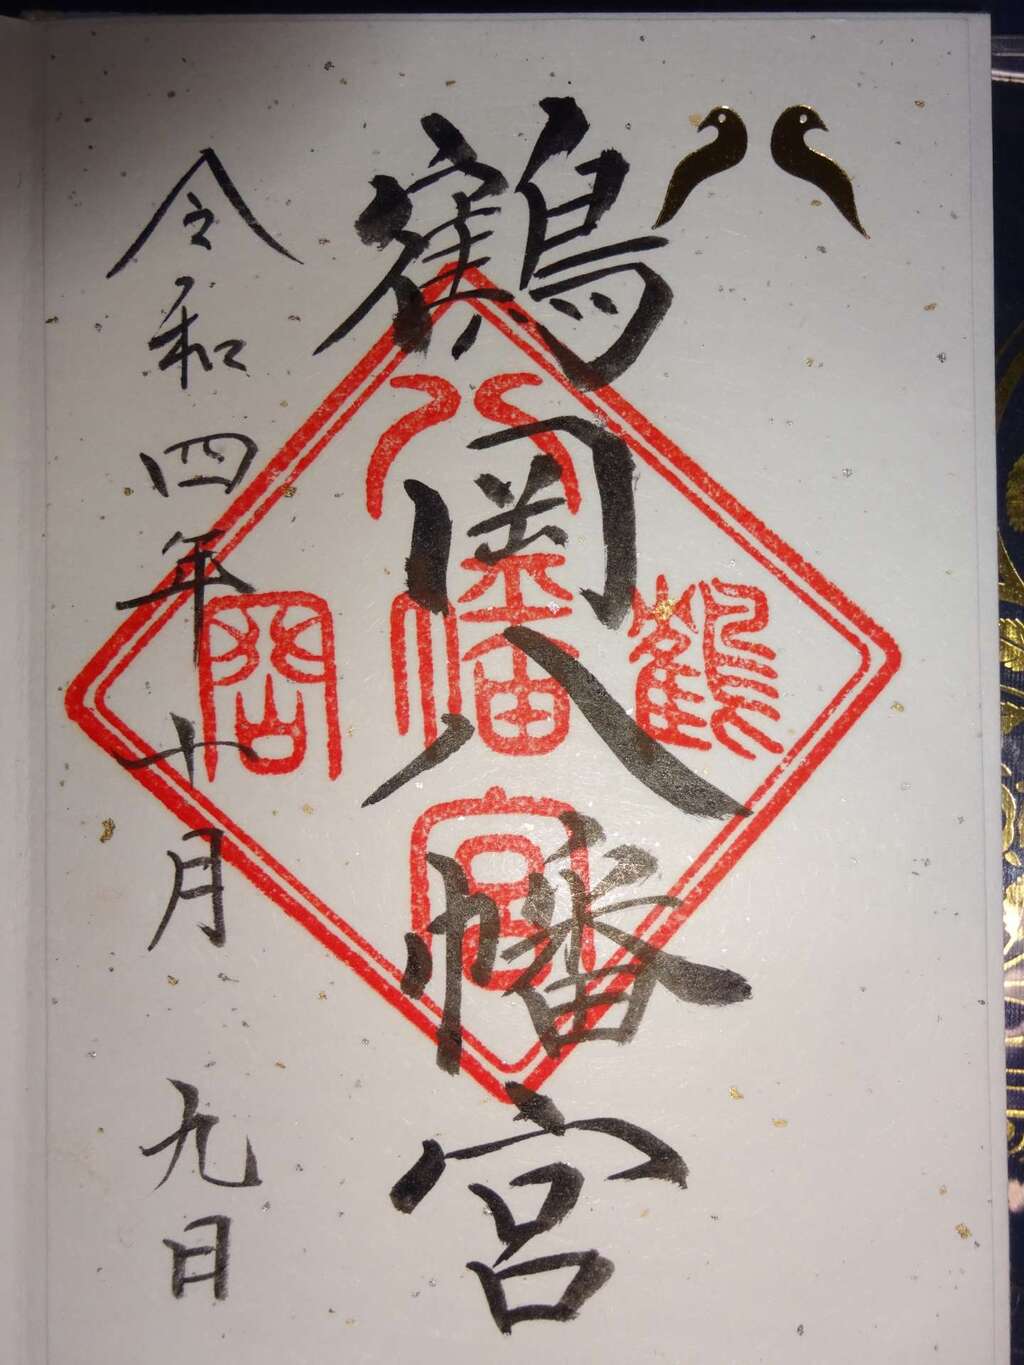 鶴岡八幡宮
鶴
八幡宮
岡
令和四年十月九日